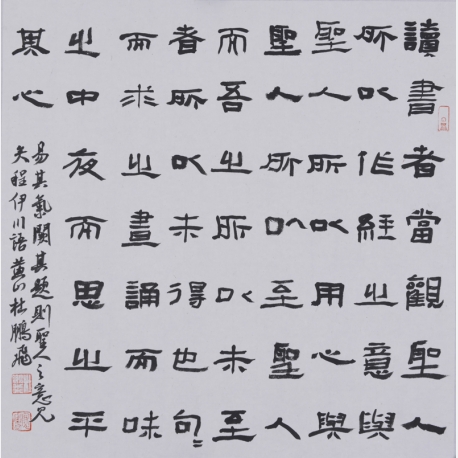 讀書者當觀聖人
所以作經之意與
聖人所以用心與
聖人所以至聖人
而吾之所以未至
者所以未得也句〻
而求之晝誦而味
之中夜而思之平
其心
易其氣闕其疑則聖人之意見
矣程伊川語黄山杜鵬飛